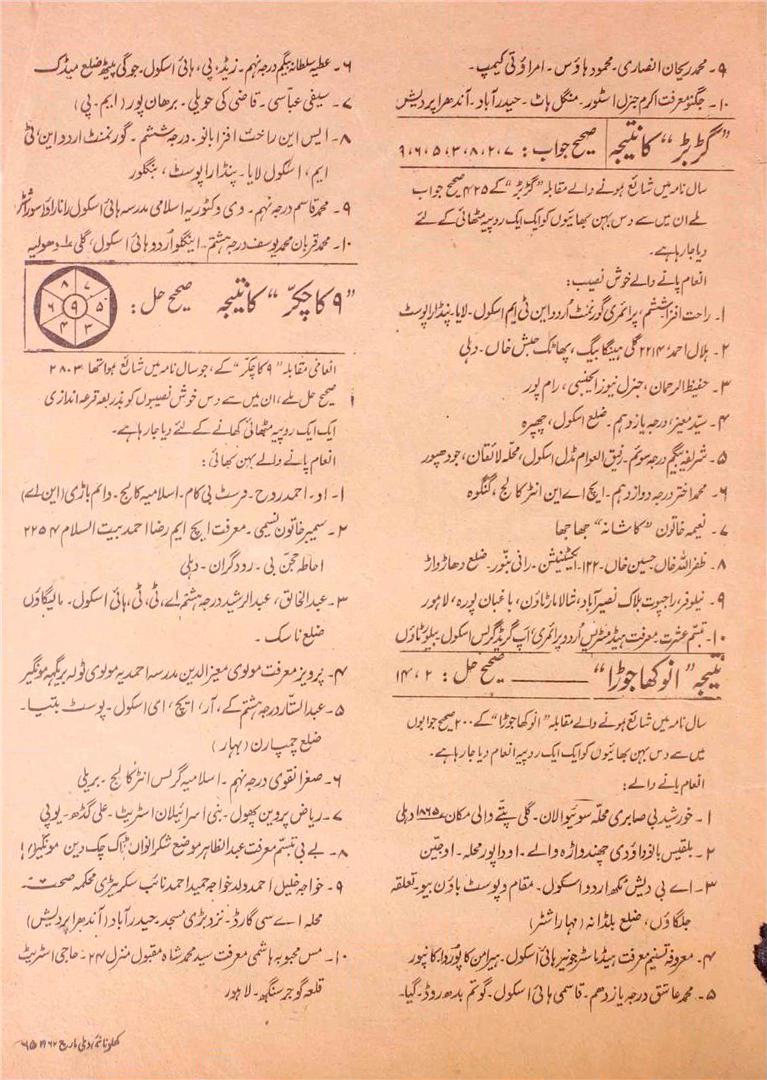 ۹۔ محمد ریحان انصاری۔ محمود ہاؤس۔ امراؤتی کیمپ۔
۱۰۔ جگنو معرفت اکرم جنرل اسٹور۔ منگل ہاٹ۔ حیدرآباد۔ آندھرا پردیش
”گڑبڑ“ کا نتیجہ صحیح جواب: ۷، ۲، ۸، ۳، ۵، ۶، ۹
سال نامہ میں شائع ہونے والے مقابلہ ”گڑبڑ“ کے ۴۲۵ صحیح جواب
ملے ان میں سے دس بہن بھائیوں کو ایک ایک روپیہ مٹھائی کے لئے
دیا جا رہا ہے۔
انعام پانے والے خوش نصیب:
۱۔ راحت افزا ششم، پرائمری گورنمنٹ اُردو این ٹی ایم اسکول۔ لایا۔ پنڈارا پوسٹ
۲۔ ہلال احمد، ۲۲۱۴ گلی ہینگا بیگ، پھاٹک حبش خاں۔ دہلی
۳۔ حفیظ الرحمان، جنرل نیوز ایجنسی، رام پور
۴۔ سیّد معیز، درجہ یازدہم۔ ضلع اسکول، چھپرہ
۵۔ شریفہ بیگم درجہ سوئم۔ رفیق العوام مڈل اسکول، محلہ لائقان، جودھپور
۶۔ محمد اختر درجہ دوازدہم۔ ایچ اے این انٹر کالج، گنگوہ
۷۔ نعیمہ خاتون ”کاشانہ“ جھاجھا
۸۔ ظفر اللہ خاں حسین خاں۔ ۱۲۲۔ ایکسٹینشن۔ رانی بنّور۔ ضلع دھارواڑ
۹۔ نیلوفر، راجپوت بلاک نصیر آباد، شالامار ٹاؤن، باغبان پورہ، لاہور
۱۰۔ تبسّم عشرت معرفت ہیڈ مسٹریس اُردو پرائمری، اَپ گریڈ گرلس اسکول، بیلو ٹاؤن
نتیجہ ”انوکھا جوڑا“ صحیح حل: ۲، ۱۴
سال نامہ میں شائع ہونے والے مقابلہ ”انوکھا جوڑا“ کے ۲۰۰ صحیح جوابوں
میں سے دس بہن بھائیوں کو ایک ایک روپیہ انعام دیا جا رہا ہے۔
انعام پانے والے:
۱۔ خورشید بی صابری محلہ سوئیوالان۔ گلی پتّے والی مکان ۱۸۶۵ دہلی
۲۔ بلقیس بانو داؤدی چھندواڑہ والے۔ اوداپور محلہ۔ اوجین
۳۔ اے بی دیش مکھ اردو اسکول۔ مقام و پوسٹ باؤن بیر۔ تعلقہ
جلگاؤں، ضلع بلڈانہ (مہاراشٹر)
۴۔ معروفہ تسنیم معرفت ہیڈ ماسٹر جونیر ہائی اسکول۔ ہیرامن کا پوروا۔ کانپور
۵۔ محمد عاشق درجہ یازدہم۔ قاسمی ہائی اسکول۔ گوتم بدھ روڈ۔ گیا۔
۶۔ عطیہ سلطانہ بیگم درجہ نہم۔ زیڈ، پی، ہائی اسکول۔ جوگی پیٹھ ضلع میدک
۷۔ سیفی عباسی۔ قاضی کی حویلی۔ برھان پور (ایم۔ پی)
۸۔ ایس این راحت افزا بانو۔ درجہ ششم۔ گورنمنٹ اردو این، ٹی
ایم، اسکول لایا۔ پنڈارا پوسٹ، بنگلور
۹۔ محمد قاسم درجہ نہم۔ دی وکٹوریہ اسلامی مدرسہ ہائی اسکول رانا راؤ سوراشٹر
۱۰۔ محمد قربان محمد یوسف درجہ ہشتم۔ اینگلو اُردو ہائی اسکول، گلی ۱ دھولیہ
”۹ کا چکّر“ کا نتیجہ صحیح حل:
۸ ۷
۶ ۹ ۵
۴ ۳
انعامی مقابلہ ”۹ کا چکّر“ کے، جو سال نامہ میں شائع ہوا تھا ۲۸۰۳
صحیح حل ملے، ان میں سے دس خوش نصیبوں کو بذریعہ قرعہ اندازی
ایک ایک روپیہ مٹھائی کھانے کے لئے دیا جا رہا ہے۔
انعام پانے والے بہن بھائی:
۱۔ او۔ احمد روح۔ فرسٹ بی کام۔ اسلامیہ کالج۔ وانم باڑی (این اے)
۲۔ سمیر خاتون نسیمی۔ معرفت ایچ ایم رضا احمد بیت السلام ۲۲۵۴
احاطہ حجّن بی۔ رودگران۔ دہلی
۳۔ عبدالخالق، عبدالرشید درجہ ہشتم اے، ٹی، ٹی، ہائی اسکول۔ مالیگاؤں
ضلع ناسک۔
۴۔ پرویز معرفت مولوی معیز الدین مدرسہ احمدیہ مولوی ٹولہ بریگہہ مونگیر
۵۔ عبدالستّار درجہ ہشتم کے، آر، ایچ، ای اسکول۔ پوسٹ بتیا۔
ضلع چمپارن (بہار)
۶۔ صغرا نقوی درجہ نہم۔ اسلامیہ گرلس انٹر کالج۔ بریلی
۷۔ ریاض پروین پھول۔ بنی اسرائیلان اسٹریٹ۔ علی گڈھ۔ یوپی
۸۔ بے بی تبسّم معرفت عبدالظاہر موضع شکرانواں ٹانک چک دین۔ مونگیر
۹۔ خواجہ خلیل احمد ولد خواجہ حمید احمد نائب سکریٹری محکمہ صحت
محلہ اے سی گارڈ۔ نزد بڑی مسجد۔ حیدرآباد (آندھرا پردیش)
۱۰۔ مس محبوبہ ہاشمی معرفت سید محمد شاہ مقبول منزل ۲۴۔ حاجی اسٹریٹ
قلعہ گوجر سنگھ۔ لاہور
کھلونا نئی دہلی مارچ ۱۹۶۲ء ۶۵